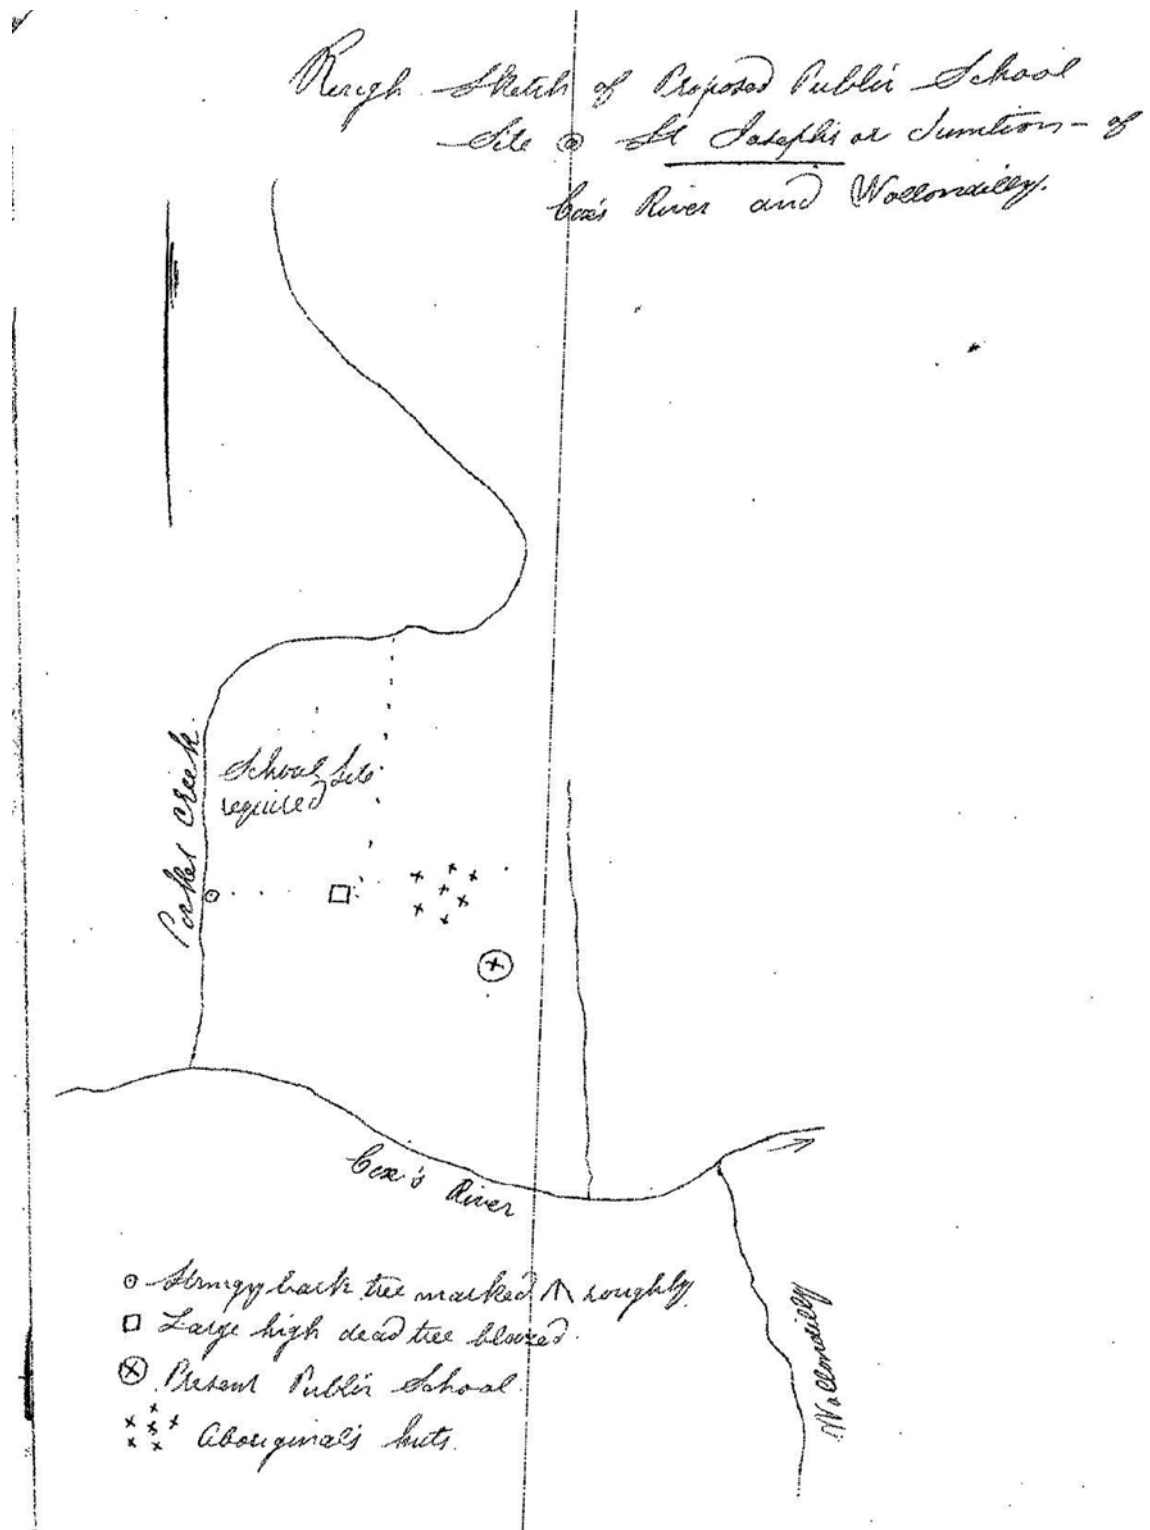 Rough Sketch of Proposed Public School
Site @ St Joseph's or Junction - of
Cox's River and Wollondilly.
School Site
required
Pocket Creek.
Cox's River
Wollondilly
Stringy bark tree marked roughly
Large high dead tree blazed.
Present Public School.
Aboriginal's huts.